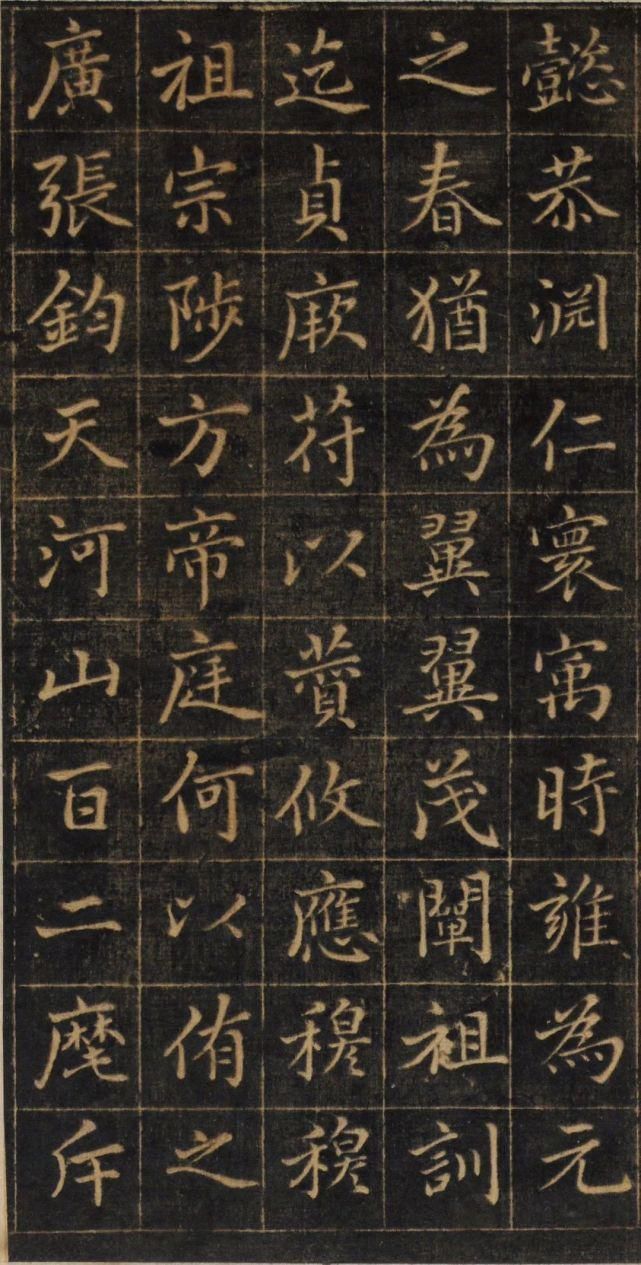 懿恭淵仁寰寓時雍為元
之春猶為翼翼茂闡祖訓
迄貞厥苻以蕡攸應穆穆
祖宗陟方帝庭何以侑之
廣張鈞天河山百二麾斥